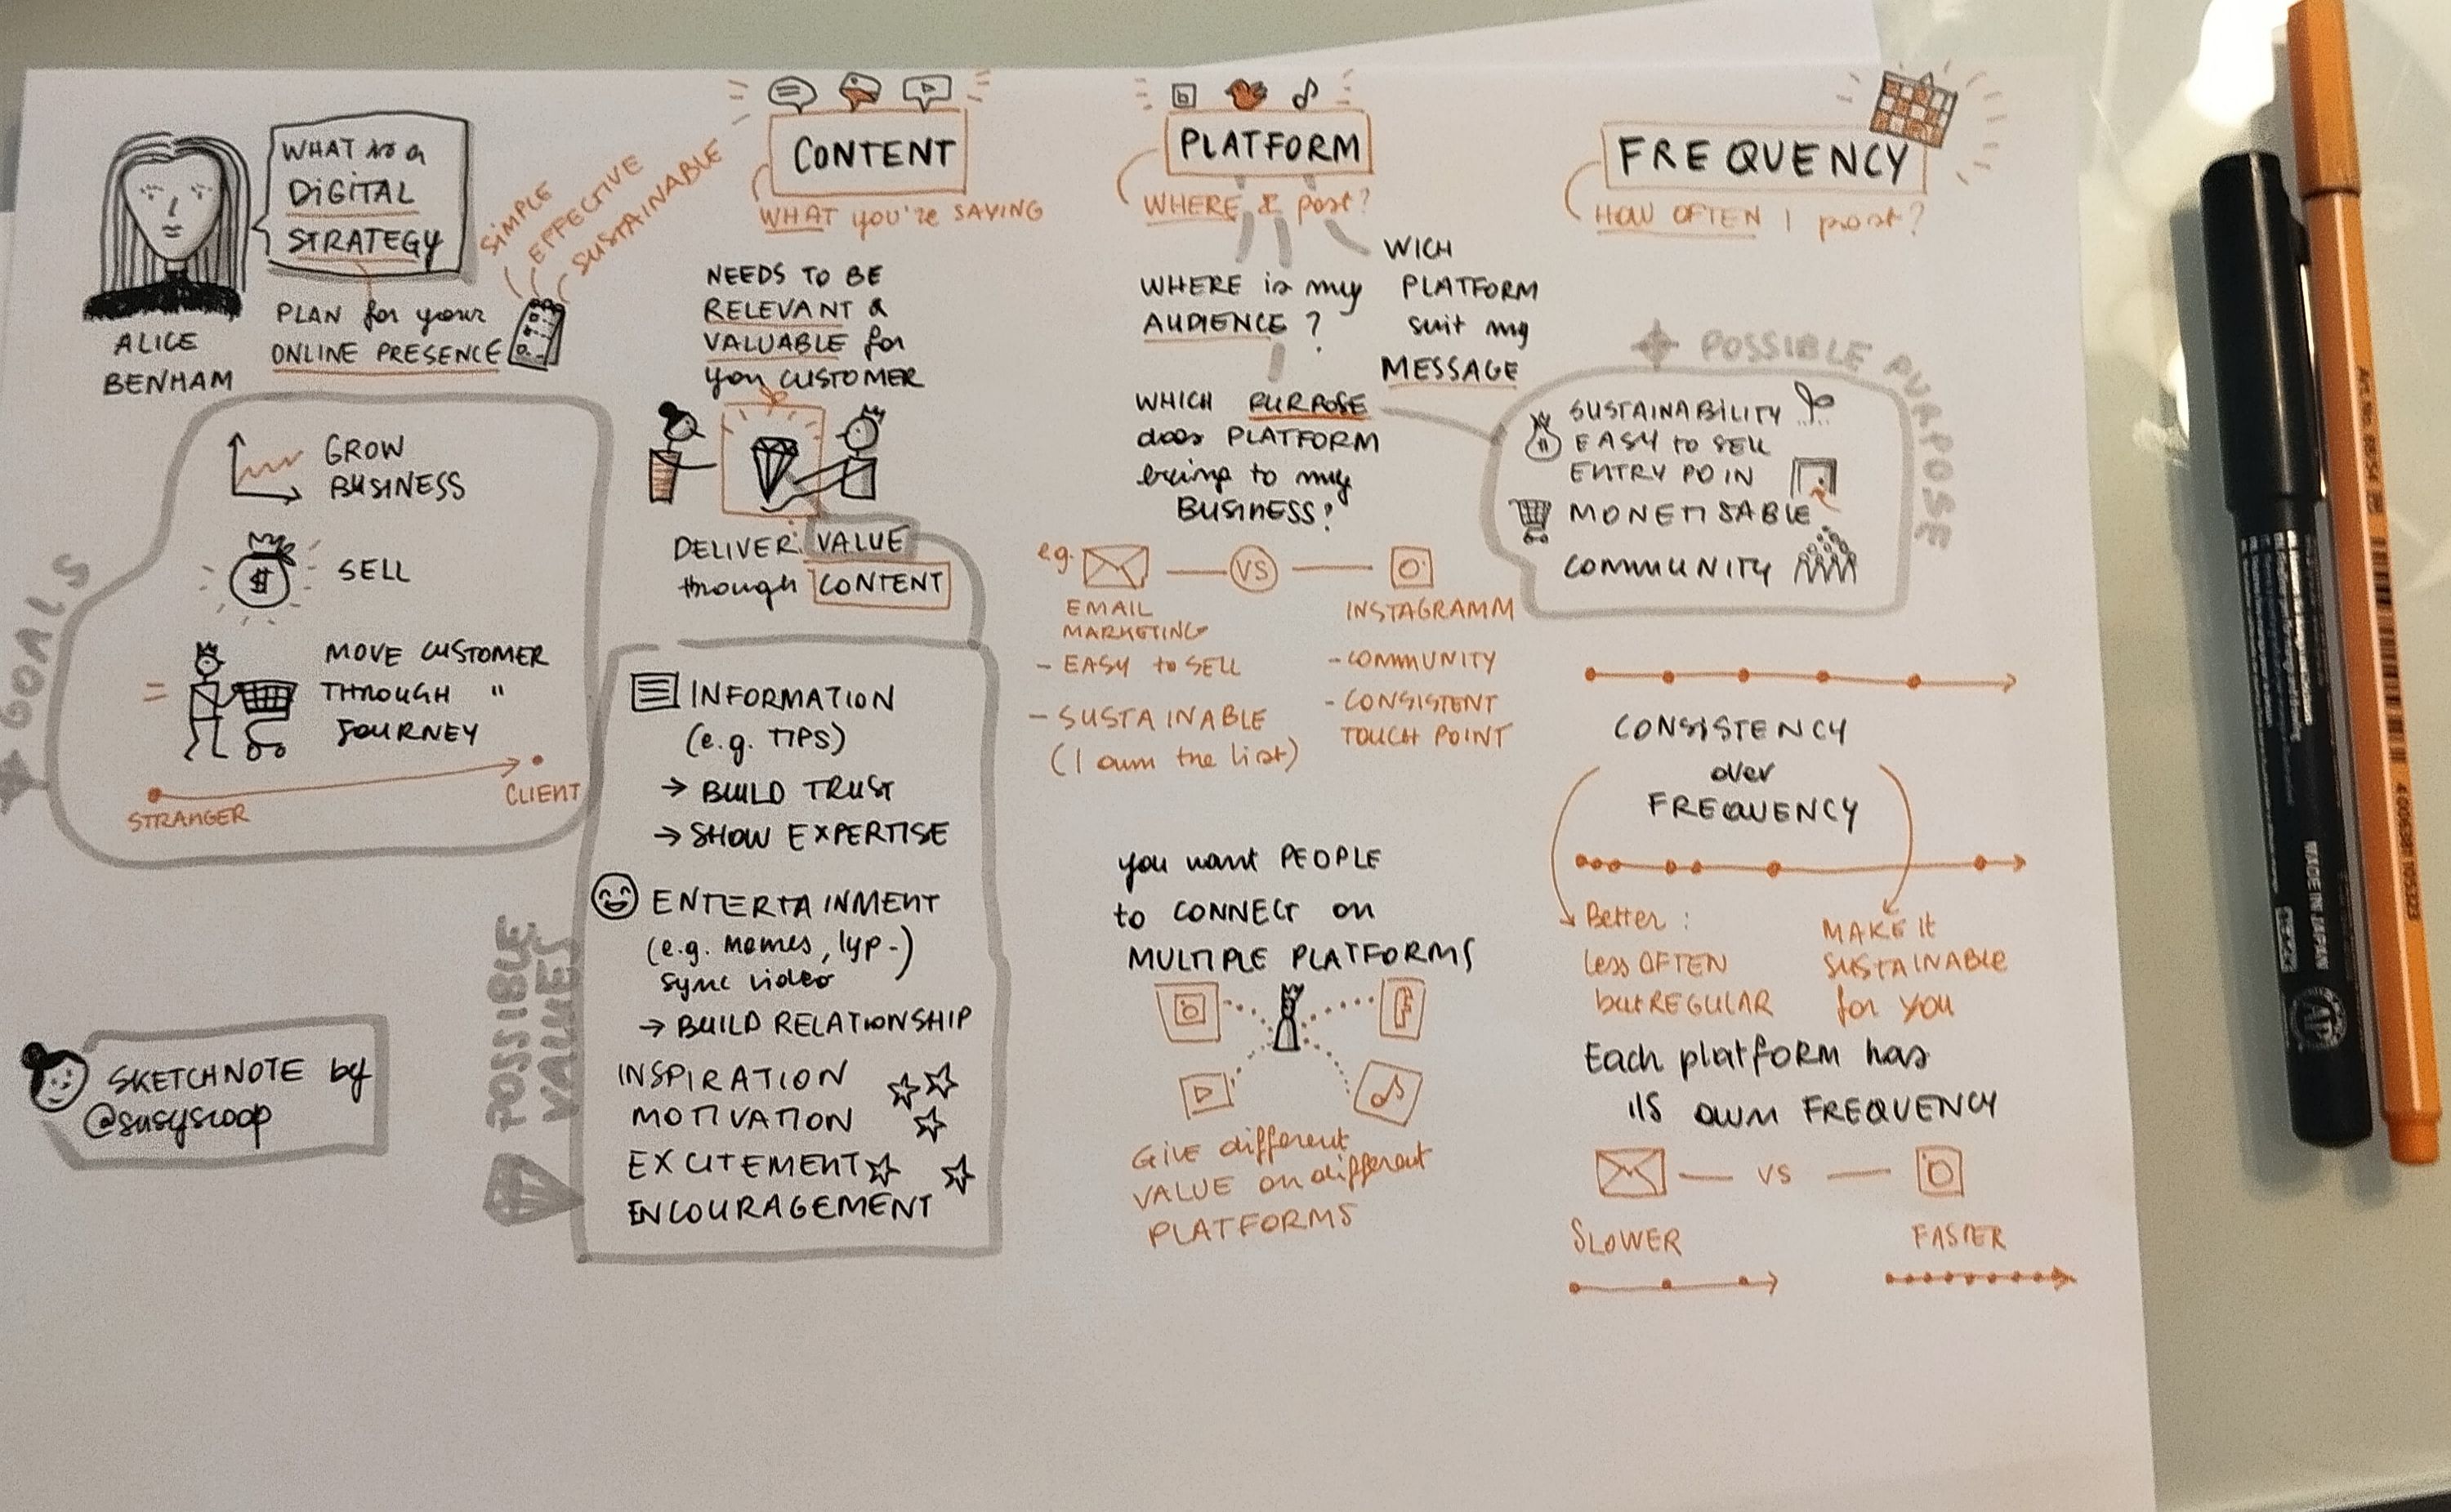 WHAT is a
DIGITAL
STRATEGY
PLAN for your
ONLINE PRESENCE
SIMPLE
EFFECTIVE
SUSTAINABLE
ALICE
BENHAM
GOALS
GROW
BUSINESS
$
SELL
=
MOVE CUSTOMER
THROUGH "
JOURNEY
STRANGER
CLIENT
SKETCHNOTE by
@susyscoop
CONTENT
WHAT you're SAYING
NEEDS TO BE
RELEVANT &
VALUABLE for
you CUSTOMER
DELIVER: VALUE
through CONTENT
POSSIBLE
VALUES
INFORMATION
(e.g. TIPS)
→ BUILD TRUST
→ SHOW EXPERTISE
ENTERTAINMENT
(e.g. Memes, lyp-)
sync video
→ BUILD RELATIONSHIP
INSPIRATION
MOTIVATION
EXCITEMENT
ENCOURAGEMENT
PLATFORM
WHERE I post?
WHERE is my
AUDIENCE ?
WICH
PLATFORM
suit my
MESSAGE
WHICH PURPOSE
does PLATFORM
bring to my
BUSINESS?
e.g.
VS
EMAIL
MARKETING
- EASY to SELL
- SUSTAINABLE
(I own the list)
INSTAGRAMM
- COMMUNITY
- CONSISTENT
TOUCH POINT
you want PEOPLE
to CONNECT on
MULTIPLE PLATFORMS
GIVE different
VALUE on different
PLATFORMS
FREQUENCY
HOW OFTEN I post?
POSSIBLE PURPOSE
SUSTAINABILITY
EASY to SELL
ENTRY POIN
MONETISABLE
COMMUNITY
CONSISTENCY
over
FREQUENCY
Better :
less OFTEN
but REGULAR
MAKE it
SUSTAINABLE
for YOU
Each platform has
its own FREQUENCY
VS
SLOWER
FASTER
MADE IN JAPAN